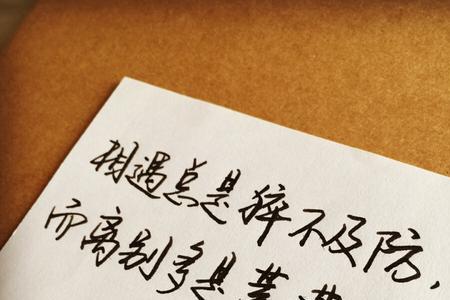 相遇总是猝不及防,
而离别多是